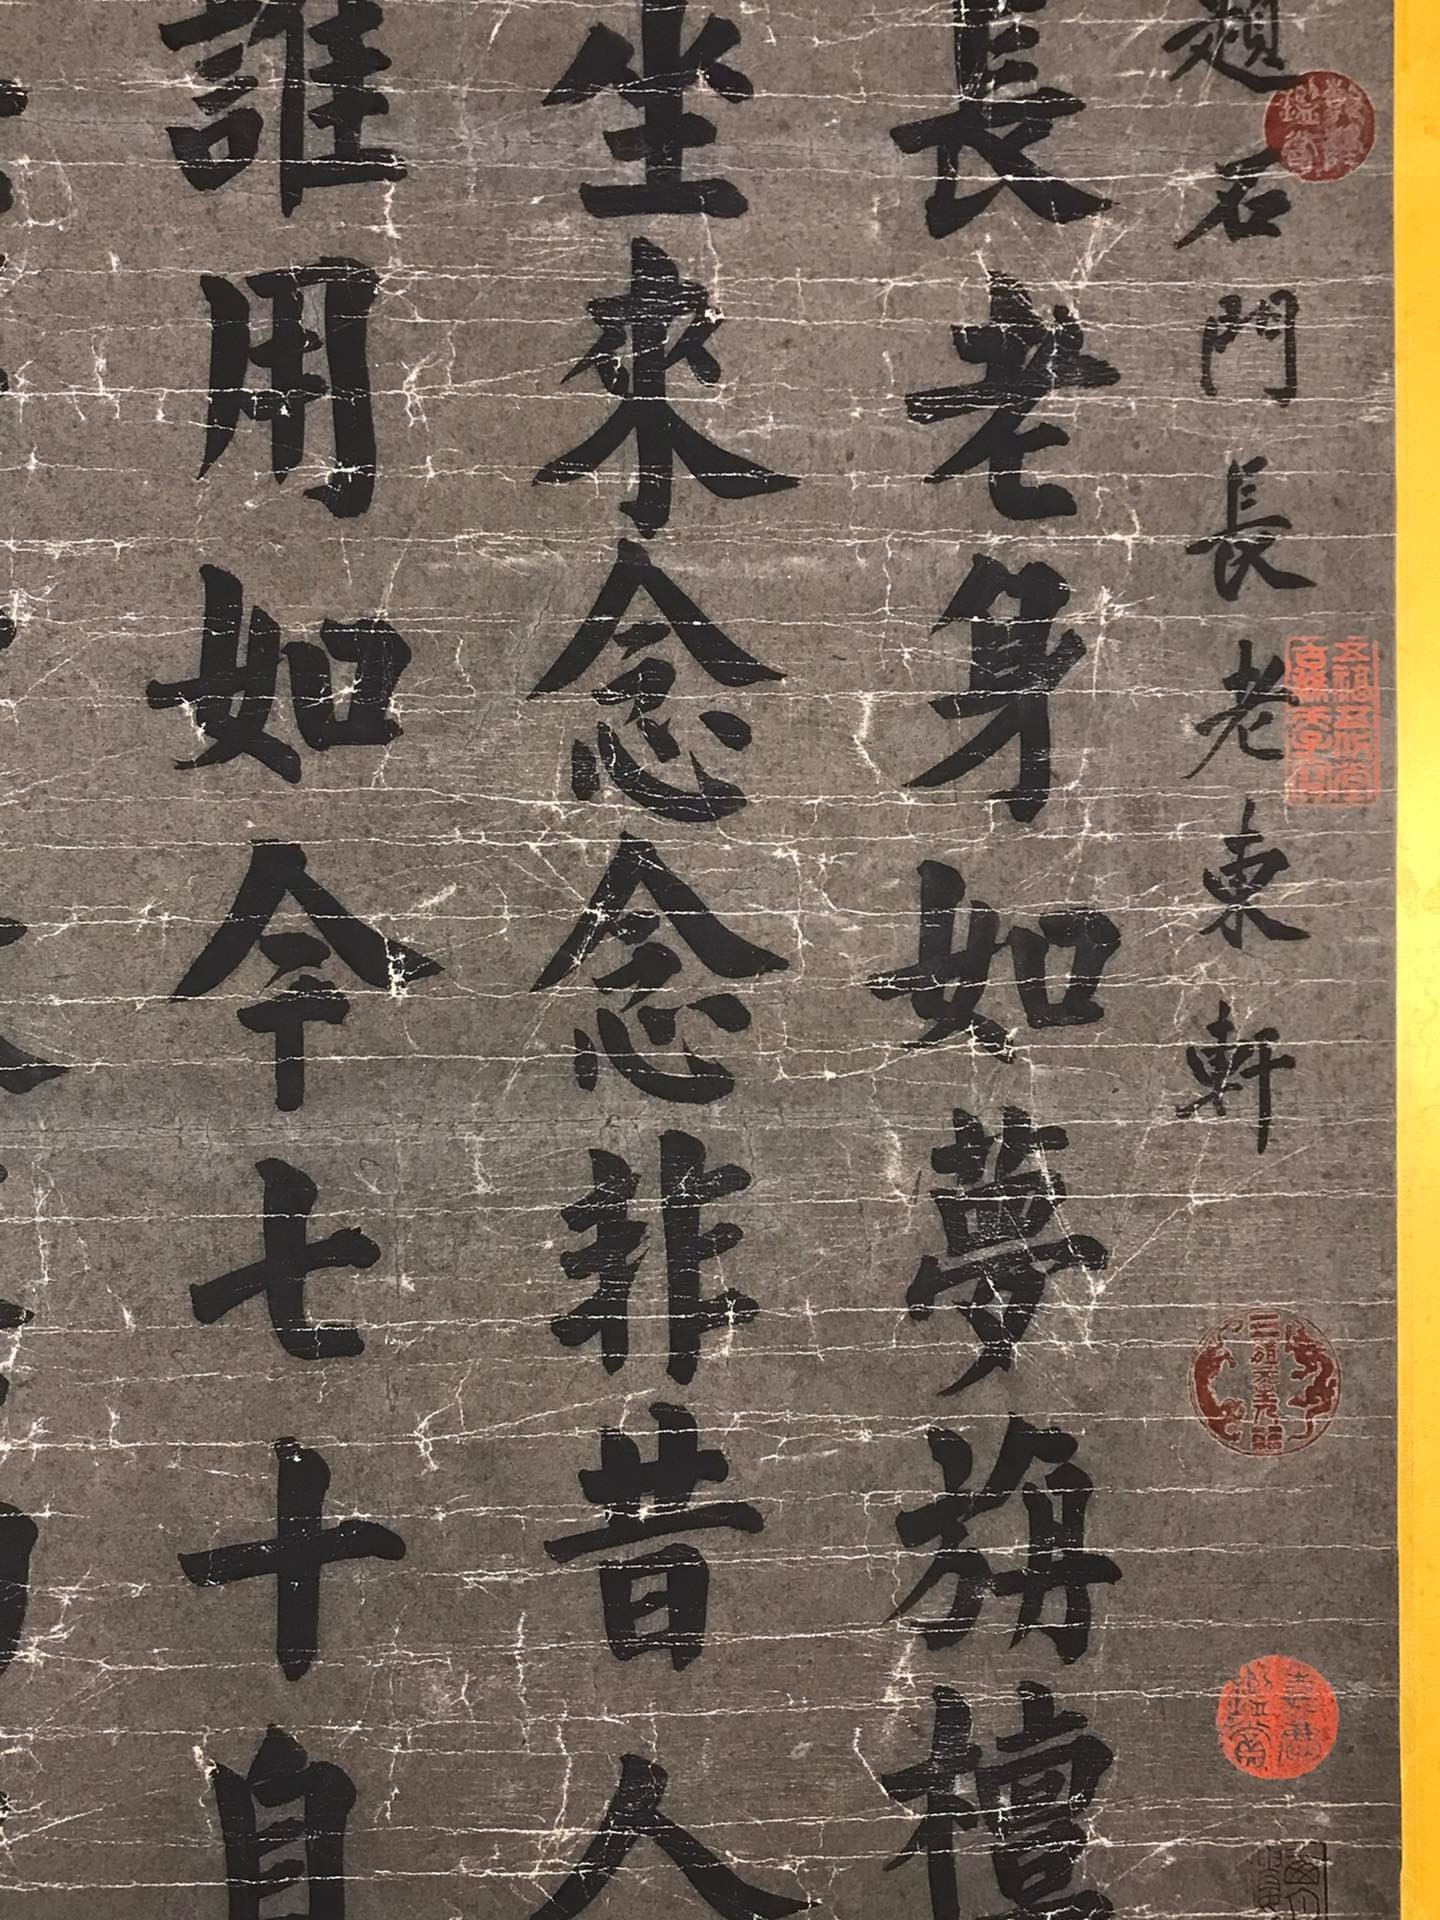 題石門長老東軒
長老身如夢旃檀
坐來念念非昔人
誰用如今七十自